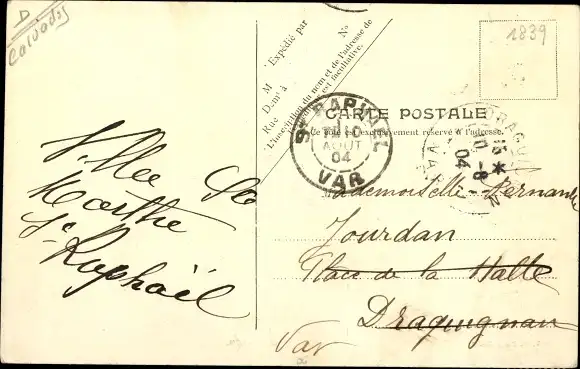 D
Calvados
1839
Expédié par
M
Demt à
Rue
No
L'inscription du nom et de l'adresse de
l'envoyeur est facultative.
CARTE POSTALE
Ce côté est exclusivement réservé à l'adresse.
ST RAPHAEL
AOUT
04
VAR
DRAGUIGNAN
15 *
10 - 8
04
VAR
Villa Ste
Marthe
St Raphaël
Mademoiselle Fernande
Jourdan
Place de la Halle
Draguignan
Var